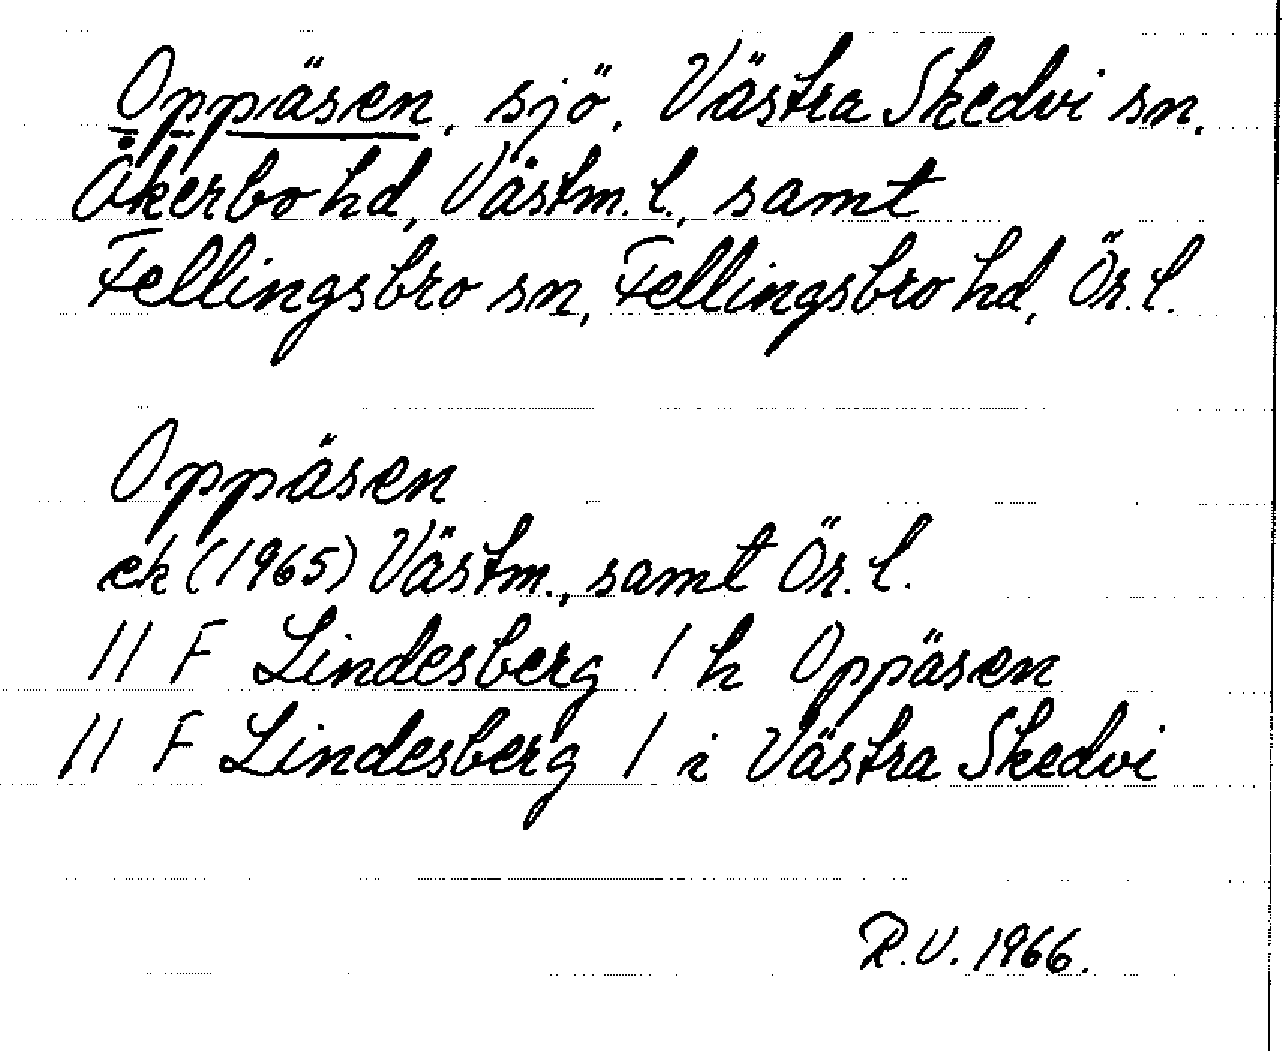 Oppäsen, sjö, Västra Skedvi sn,
Åkerbo hd, Västm. l., samt
Fellingsbro sn, Fellingsbro hd, Ör. l.
Oppäsen
ek (1965) Västm., samt Ör. l.
11 F Lindesberg 1 h Oppäsen
11 F Lindesberg 1 i Västra Skedvi
R.U. 1966.